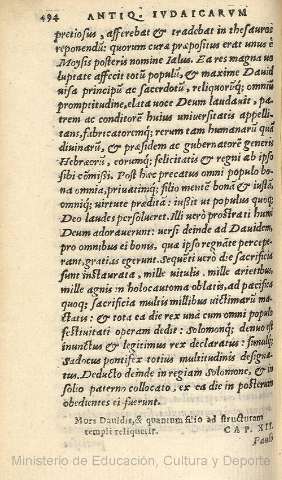 494 ANTIQ. IVDAICARVM
pretiosus, afferebat & tradebat in thesauros
reponendũ: quorum cura præpositus erat unus è
Moysis posteris nomine Ialus. Ea res magna uo
luptate affecit totũ populũ, & maxime Dauid
uisa principũ ac sacerdotũ, reliquorũq; omniũ
promptitudine, elata uoce Deum laudauit, pa-
trem ac conditorẽ huius uniuersitatis appelli-
tans, fabricatoremq; rerum tam humanarũ quã
diuinarũ, & præsidem ac gubernatorẽ generis
Hebræorũ, eorumq; felicitatis & regni ab ipso
sibi cõmissi. Post hæc precatus omni populo bo
na omnia, priuatimq; filio mentẽ bonã & iustã,
omniq; uirtute præditã: iussit ut populus quoq;
Deo laudes persolueret. Illi uerò prostrati humi
Deum adorauerunt: uersi deinde ad Dauidem,
pro omnibus ei bonis, quæ ipso regnãte percepe
rant, gratias egerunt. Sequẽti uerò die sacrificia
sunt instaurata, mille uitulis, mille arietibus,
mille agnis in holocautoma oblatis, ad pacifica
quoq; sacrificia multis millibus uictimarũ ma-
ctatis: & tota ea die rex unà cum omni populo
festiuitati operam dedit: Solomonq; denuo est
inunctus & legitimus rex declaratus: simulq;
Sadocus pontifex totius multitudinis designa-
tus. Deducto deinde in regiam Solomone, & in
solio paterno collocato, ex ea die in posterum
obedientes ei fuerunt.
Mors Dauidis, & quantum filio ad structuram
templi reliquerit. CAP. XII.
Paulo
Ministerio de Educación, Cultura y Deporte